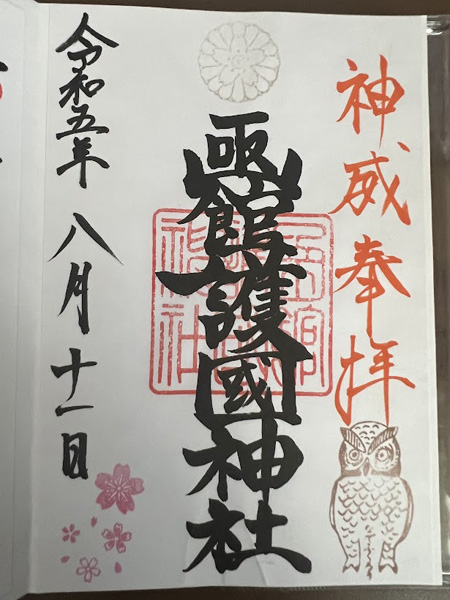 神威奉拝
函館護國神社
令和五年 八月十一日